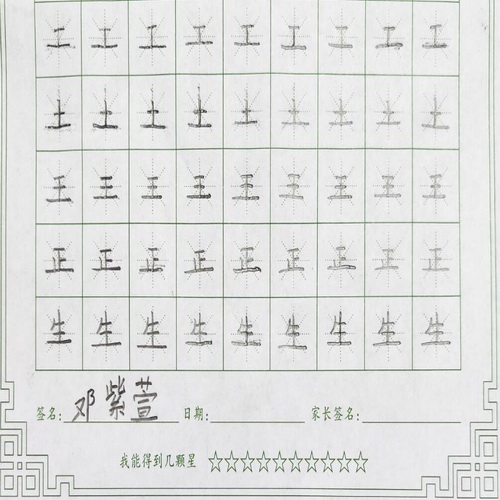 工 工 工 工 工 工 工 工 工
土 土 土 土 土 土 土 土 土
王 王 王 王 王 王 王 王 王
正 正 正 正 正 正 正 正 正
生 生 生 生 生 生 生 生 生
签名: 邓紫萱 日期: 家长签名:
我能得到几颗星 ☆☆☆☆☆☆☆☆☆☆